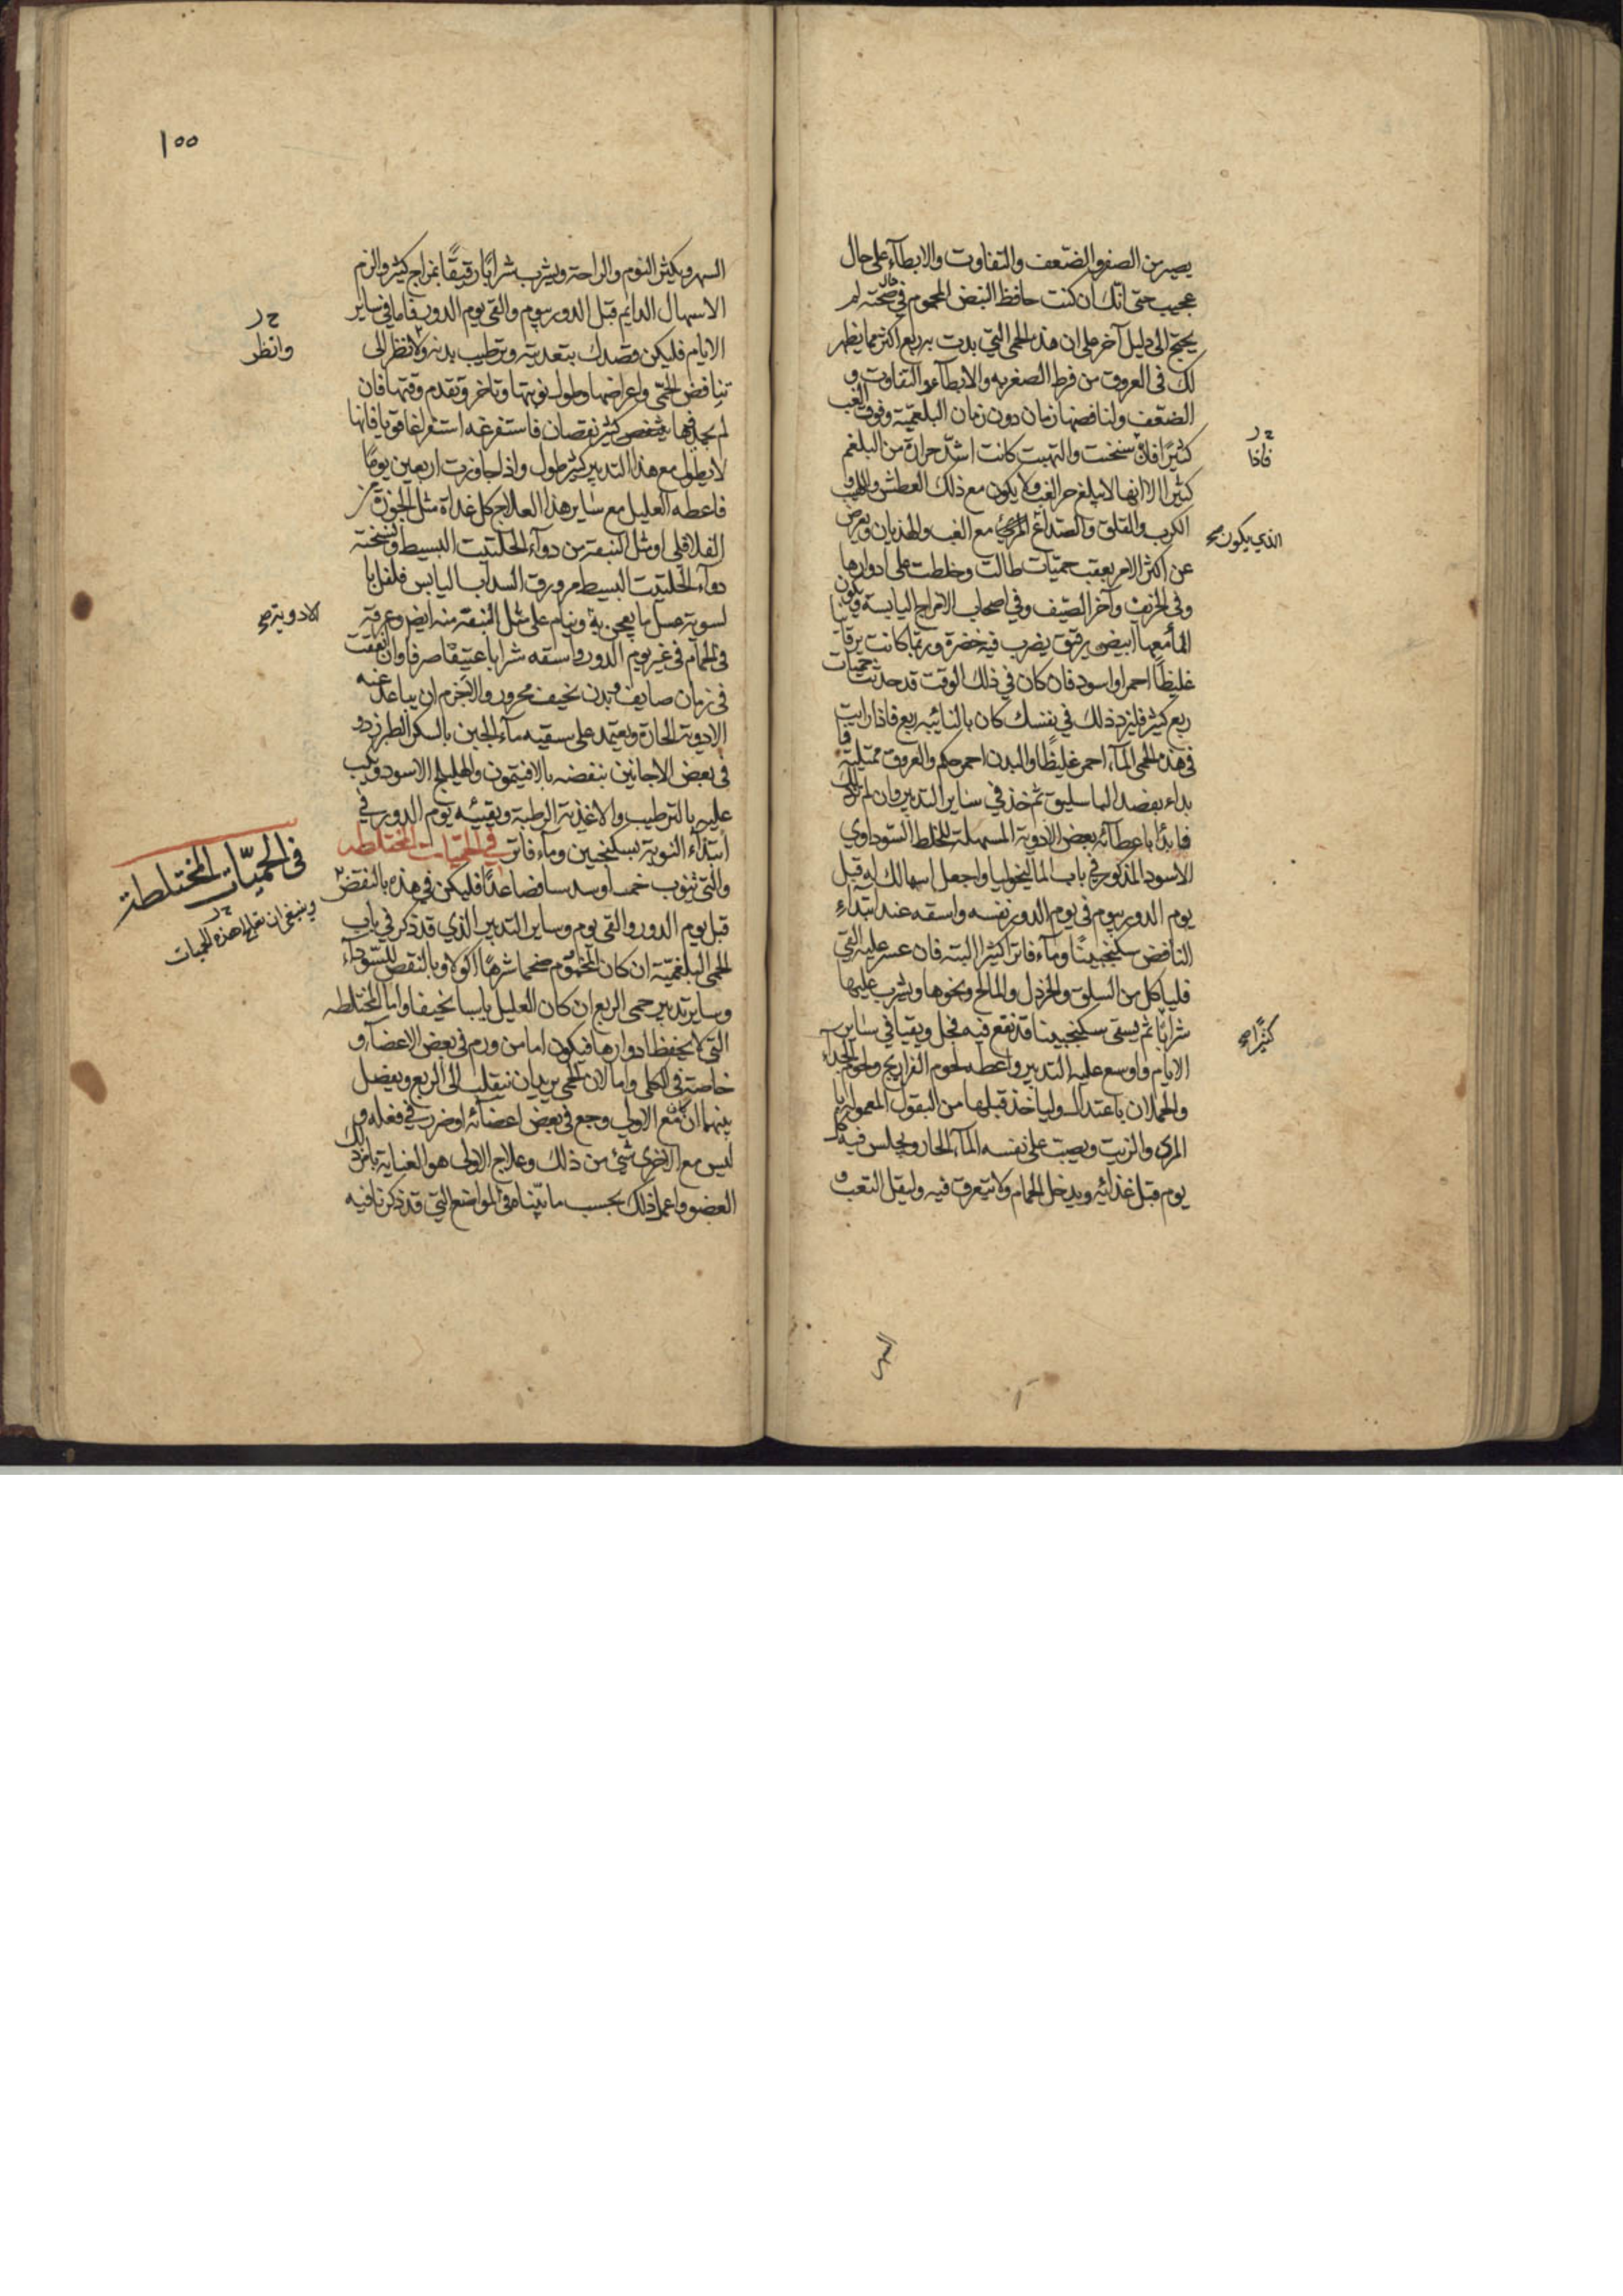 يصير من الصغر والضعف والتفاوت والابطآء على حال
عجيب حتى انك ان كنت حافظ النبض المحموم في حال صحته لم
يحتج الى دليل آخر على ان هذه الحمى التي بدت به ربع اكثر مما يظهر
لك في العروق من فرط الصغر به والابطآء والتفاوت و
الضعف ولنافضها زمان دون زمان البلغمية وفوق الغب
كثيرًا فلان سخنت والتهبت كانت اشد حرارة من البلغم
كثيرا الا انها لا يبلغ حر الغب ولا يكون مع ذلك العطش واللهب و
الكرب والقلق والصداع المرئ مع الغب والهذيان ويعرض
عن اكثر الامر بعقب حميات طالت وخلطت على ادوارها
وفي الخريف وآخر الصيف وفي اصحاب الامزاج اليابسة ويكون
المآء معها ابيض رقيق يضرب فيه خضرة وربما كانت برقان
غليظًا احمر او اسود فان كان في ذلك الوقت قد حدثت حميات
ربع كثير فليزد ذلك في نفسك كان بالنائبه ربع فاذا رايت
في هذه الحمى المآء احمر غليظًا والبدن احمر والعروق ممتلية فا
بداء بفصد الباسليق ثم خذ في ساير التدبير وان لم تر ذلك
فابدأ باعطآئه بعض الادوية المسهلة للخلط السوداوي
الاسود المذكور في باب الماليخوليا واجعل اسهالك له قبل
يوم الدور بيوم في يوم الدور نفسه واسقه عند ابتدآء
النافض سكنجبينًا ومآء فاترا كثيرا البتة فان عسر عليه القئ
فلياكل من السلق والخردل والمالح ونحوها ويشرب عليها
شرابًا ثم يسقى سكنجبينا قد نقع فيه فجل ويقيا في ساير
الايام واوسع عليه التدبير واعطه لحوم الفراريج ولحوم الجداء
والحملان باعتدال ولياخذ قبلها من البقول المعمولة با
المرى والزيت ويصب على نفسه المآء الحار ويجلس فيه كل
يوم قبل غذائه ويدخل الحمام ولا يتعرق فيه وليقل التعب و
السهر
ح ر
فاذا
الذي يكون صح
كثيرًا صح
١٥٥
السهر ويكثر النوم والراحة ويشرب شرابًا رقيقًا بمزاج كثير والزم
الاسهال الدايم قبل الدور بيوم والقئ يوم الدور فاما في ساير
الايام فليكن قصدك بتغديته وترطيب بدنه ولا تنظر الى
تنافض الحمى واعراضها وطول نوبتها وتاخر وتقدم وقتها فان
لم تجد فيها بنقص كثير نقصان فاستفرغه استفراغا قويا فانها
لا يطول مع هذا التدبير كثير طول واذا جاوزت اربعين يومًا
فاعطه العليل مع ساير هذا العلاج كل غداة مثل الجوزة من
الفلافلى او مثل البنقة من دوآء الحلتيت البسيط ونسخته
دوآء الحلتيت البسيط مر ورق السداب اليابس فلفل با
لسوية عسل ما يعجن به وينام على مثل البنقة منه ايضا وعرقه
في الحمام في غير يوم الدور واسقه شرابا عتيقًا صرفا وان اتفقت
في زمان صايف وبدن نحيف محرور والاحزم ان يباعد عنه
الادوية الحارة ويعتمد على سقيه مآء الجبن بالسكر الطبرزد و
في بعض الاحايين بنفضه بالافتيمون والهليلج الاسود وتكب
عليه بالترطيب والاغذية الرطبة ويقيئه يوم الدور في
ابتدآء النوبة بسكنجبين ومآء فاتر في الحميات المختلطه
والتي تنوب خمسا وسدسا فصاعدًا فليكن في هذه بالنقض
قبل يوم الدور والقى يوم وساير التدبير الذي قد ذكر في باب
الحمى البلغمية ان كان المحموم ضخما شرهًا اكولا وبالنقض للسودآء
وساير تدبير حمى الربع ان كان العليل يابسا نحيفا واما المختلطه
التي لا يحفظ ادوارها فيكون اما من ورم في بعض الاعضآء و
خاصة في الكلى واما لان الحمى يريد ان تنقلب الى الربع ويفضل
بينهما ان مع الاولى وجع في بعض اعضآئه او ضرر في فعله و
ليس مع الاخرى شئ من ذلك وعلاج الاولى هو العناية بامر ذلك
العضو واعمل ذلك بحسب ما بيناه في المواضع التي قد ذكرنا فيه
ح ر
وانظر
الادوية صح
في الحميّات المختلطة
ح ر
وينبغي ان تعلم هذه الحميات